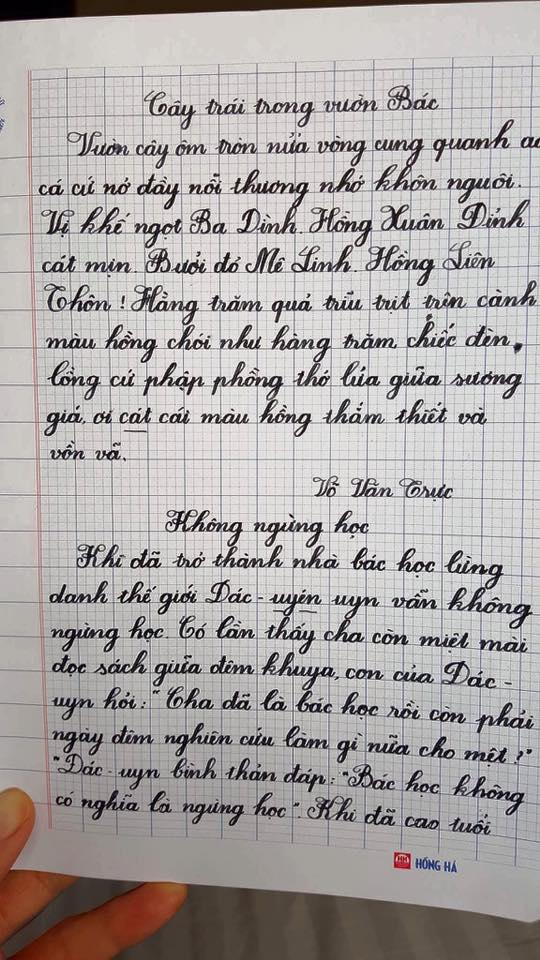 Cây trái trong vườn Bác
Vườn cây ôm tròn nửa vòng cung quanh ao
cá cứ nở đầy nỗi thương nhớ khôn nguôi.
Vị khế ngọt Ba Đình. Hồng Xuân Đỉnh
cát mịn. Bưởi đỏ Mê Linh. Hồng Tiên
Thôn! Hằng trăm quả trĩu trịt trên cành
màu hồng chói như hàng trăm chiếc đèn
lồng cứ phập phồng thở lửa giữa sương
giá, ơi cát cái màu hồng thắm thiết và
vồn vã.
Võ Văn Trực
Không ngừng học
Khi đã trở thành nhà bác học lừng
danh thế giới Đác-uyên uyn vẫn không
ngừng học. Có lần thấy cha còn miệt mài
đọc sách giữa đêm khuya, con của Đác-
uyn hỏi: "Cha đã là bác học rồi còn phải
ngày đêm nghiên cứu làm gì nữa cho mệt?"
"Đác-uyn bình thản đáp: "Bác học không
có nghĩa là ngừng học". Khi đã cao tuổi
HỒNG HÀ